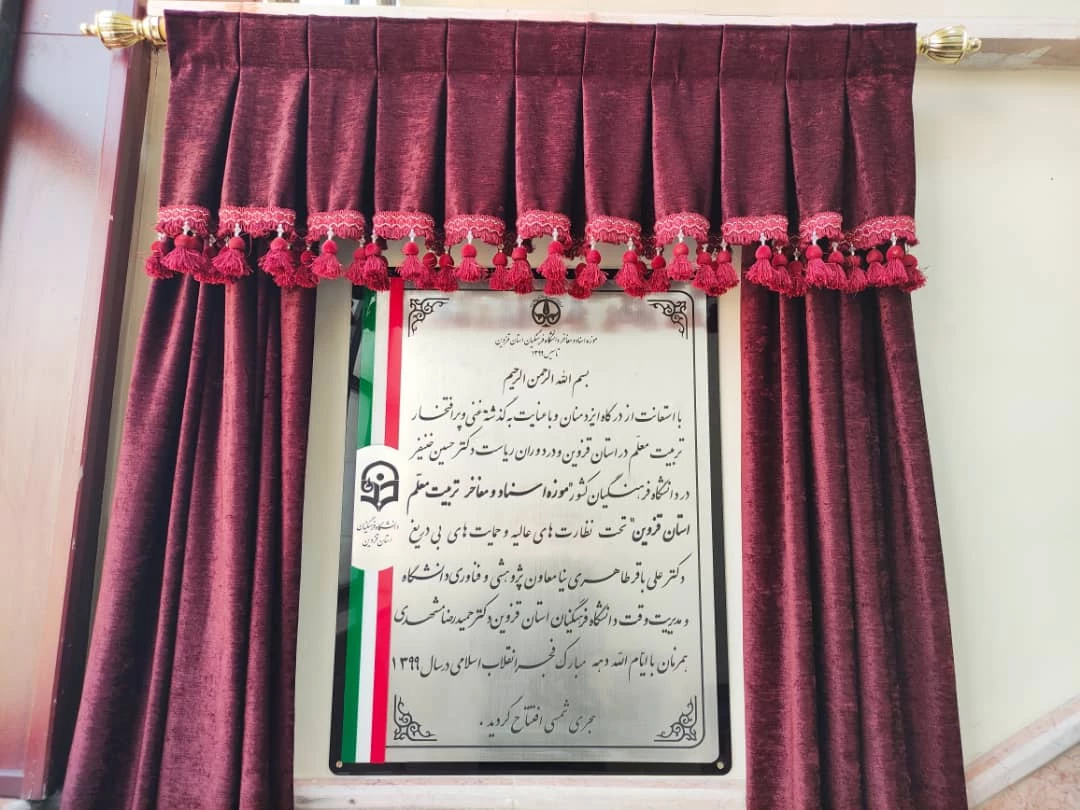 موزه اسناد و مفاخر دانشگاه فرهنگیان استان قزوین
تاسیس ۱۳۹۹
بسم الله الرحمن الرحیم
با استعانت از درگاه ایزد منان و با عنایت به گذشته غنی و پرافتخار
تربیت معلّم در استان قزوین و در دوران ریاست دکتر حسین خنیفر
در دانشگاه فرهنگیان کشور "موزه اسناد و مفاخر تربیت معلّم
استان قزوین" تحت نظارت های عالیه و حمایت های بی دریغ
دکتر علی باقر طاهری نیا معاون پژوهشی و فناوری دانشگاه
و مدیریت وقت دانشگاه فرهنگیان استان قزوین دکتر حمیدرضا مشهدی
همزمان با ایّام الله دهه مبارک فجر انقلاب اسلامی در سال ۱۳۹۹
هجری شمسی افتتاح گردید .
دانشگاه فرهنگیان
استان قزوین